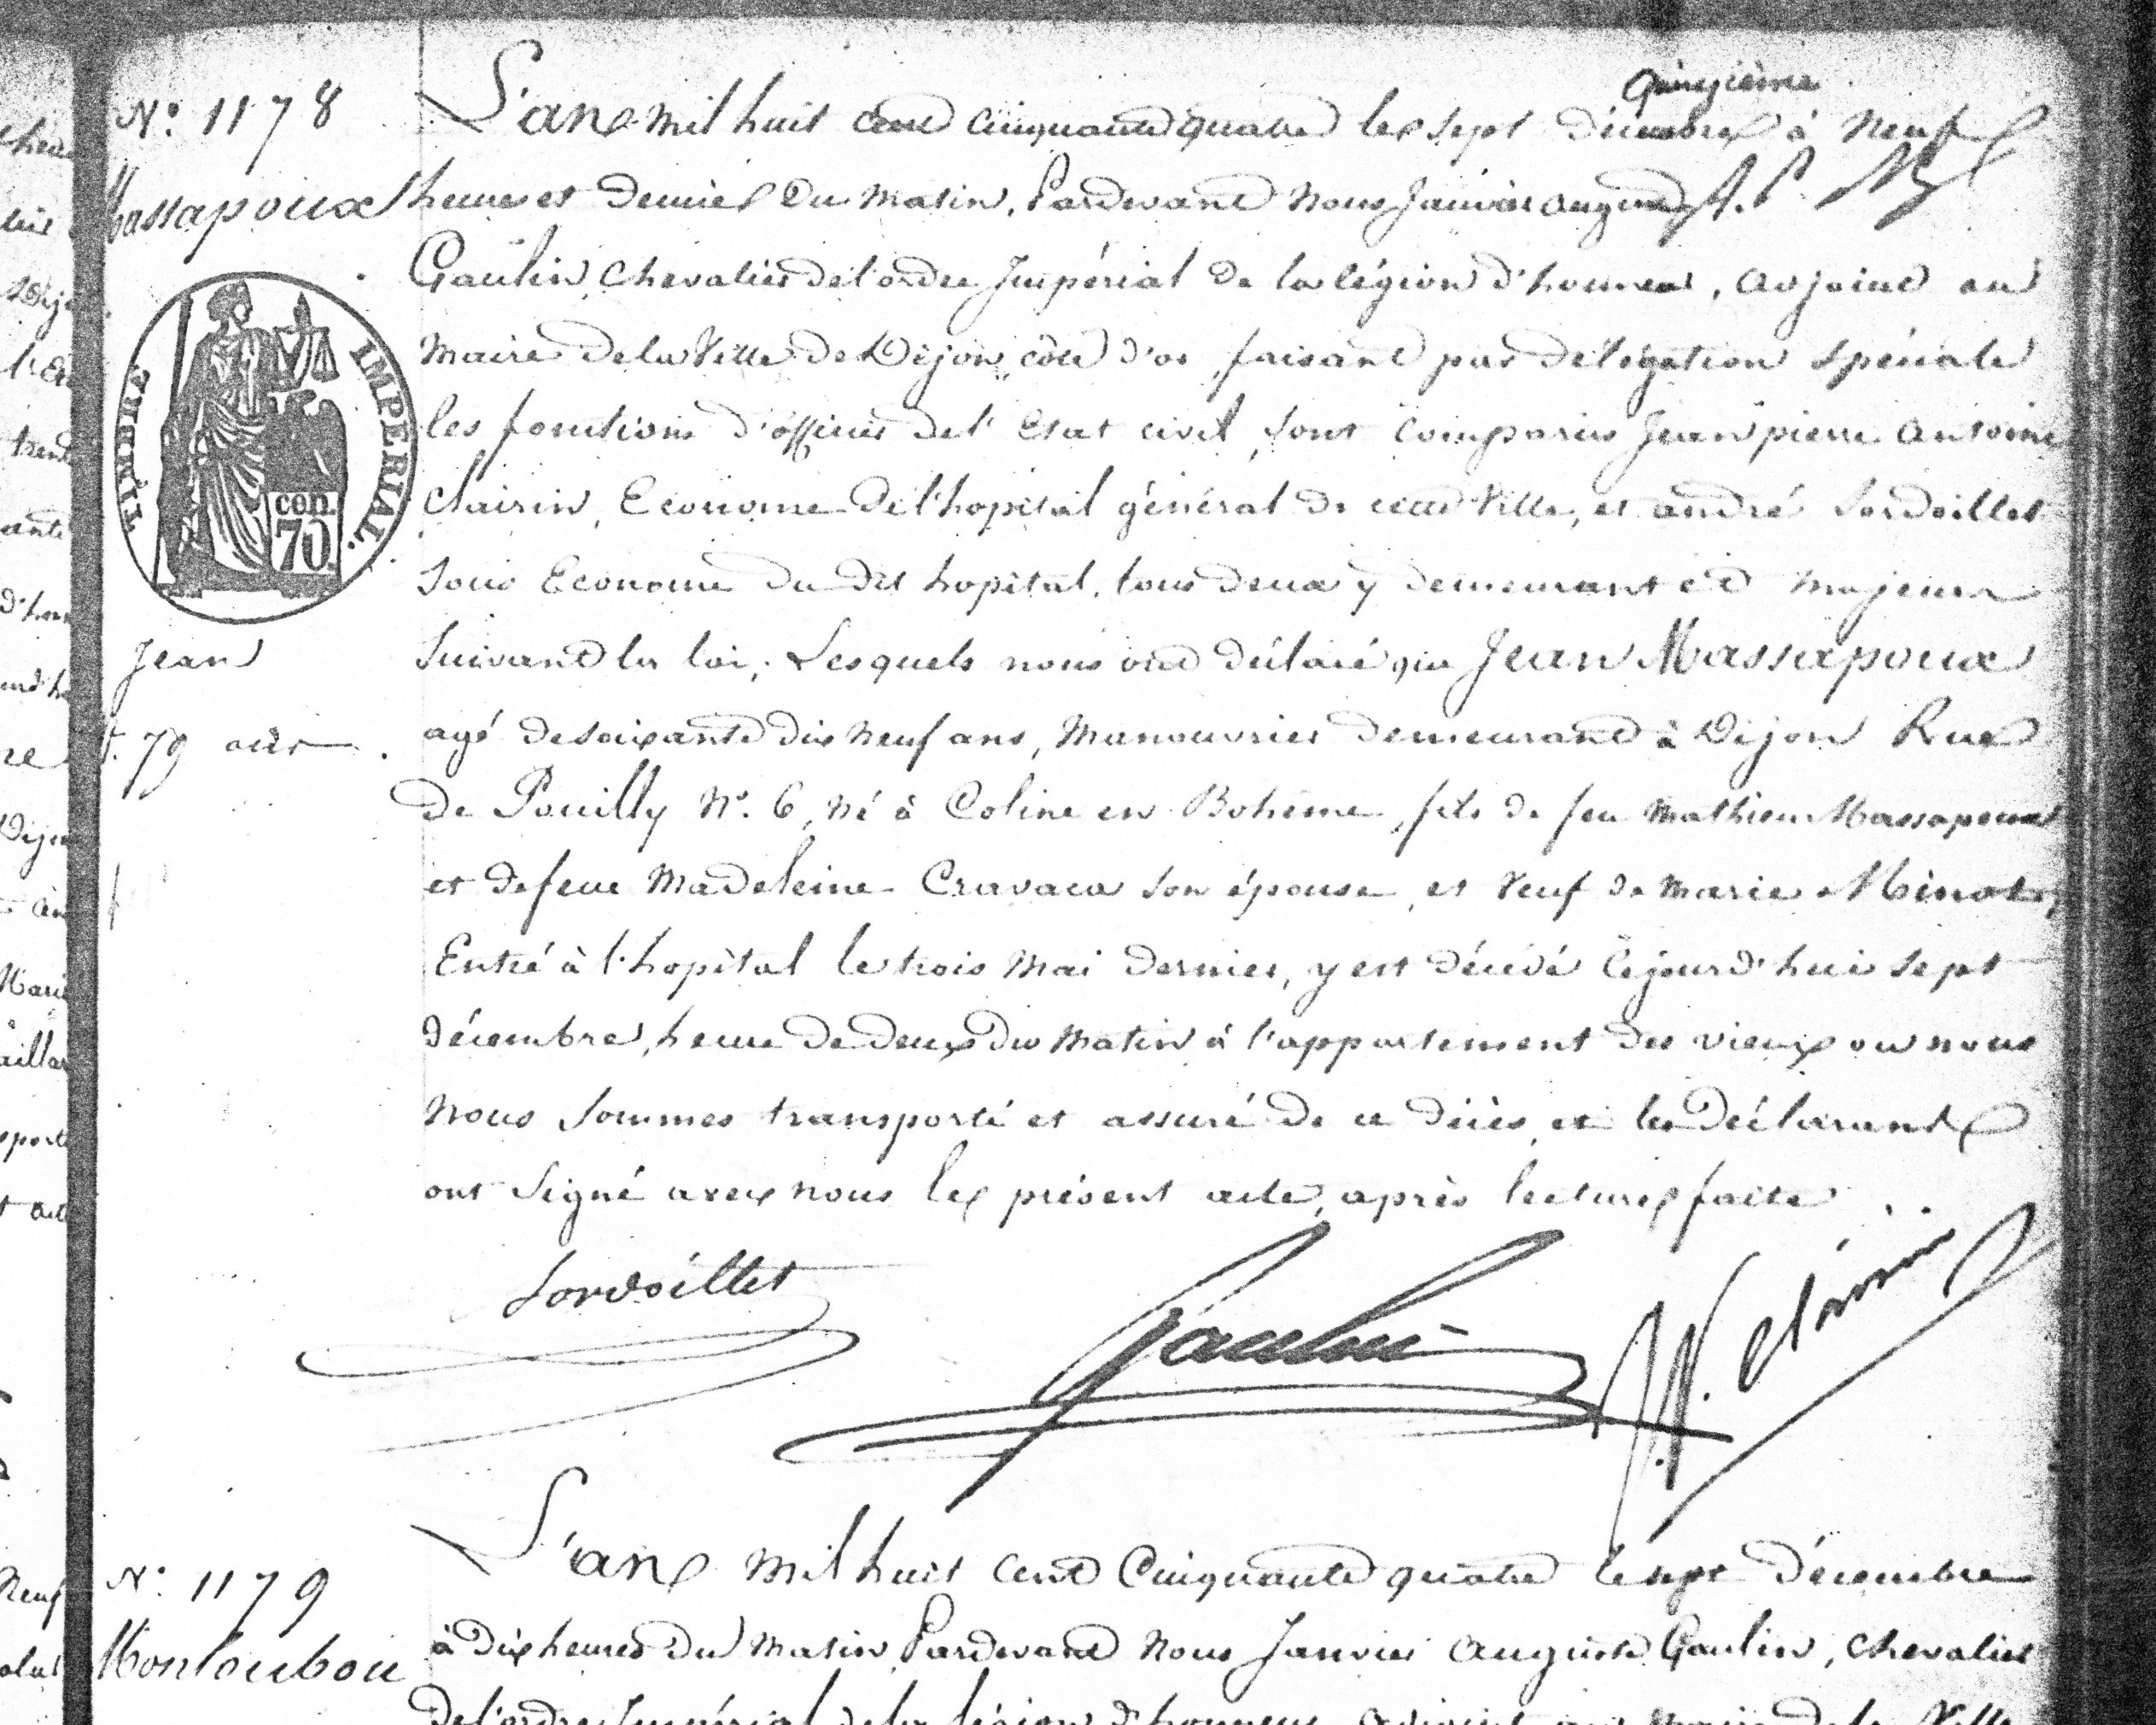 quinzième
N° 1178
L'an mil huit cent cinquante quatre le sept décembre à neuf
Massapoux
heure et demie du matin, Pardevant nous Janvier auguste
Gaulin, chevalier de l'ordre Impérial de la légion d'honneur, adjoint au
Maire de la Ville de Dijon, côte d'or, faisant par délégation spéciale
les fonctions d'officier de l'Etat civil, sont comparus Jean pierre antoine
Clairin, Econome de l'hopital général de cette Ville, et andré Sordoillet
Sous Econome du dit hopital, tous deux y demeurant et majeurs
TIMBRE IMPERIAL.
cen.
70
Jean
Suivant la loi, Lesquels nous ont déclaré que Jean Massapoux
79 ans
agé de soixante dix neuf ans, Manouvrier demeurant à Dijon Rue
de Pouilly N°. 6, né à Coline en Bohême, fils de feu Mathieu Massapoux
et de feue Madeleine Cravaca son épouse, et Veuf de Marie Minot,
Entré à l'hopital le trois Mai dernier, y est décédé cejourd'hui sept
décembre, heure de deux du matin à l'appartement des vieux ou nous
nous sommes transporté et assuré de ce décès, et les Déclarants
ont signé avec nous le présent acte, après lecture faite
Sordoillet
Gaulin
Clairin
L'an mil huit cent Cinquante quatre le sept décembre
N° 1179
à dix heures du matin Pardevant nous Janvier auguste Gaulin, chevalier
Montoubou
de l'ordre Impérial de la légion d'honneur, adjoint au maire de la Ville